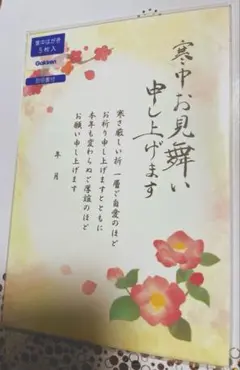 寒中はがき
5枚入
Gakken
寒中お見舞い
申し上げます
寒さ厳しい折 一層ご自愛のほど
お祈り申し上げますとともに
本年も変わらぬご厚誼のほど
お願い申し上げます
年 月